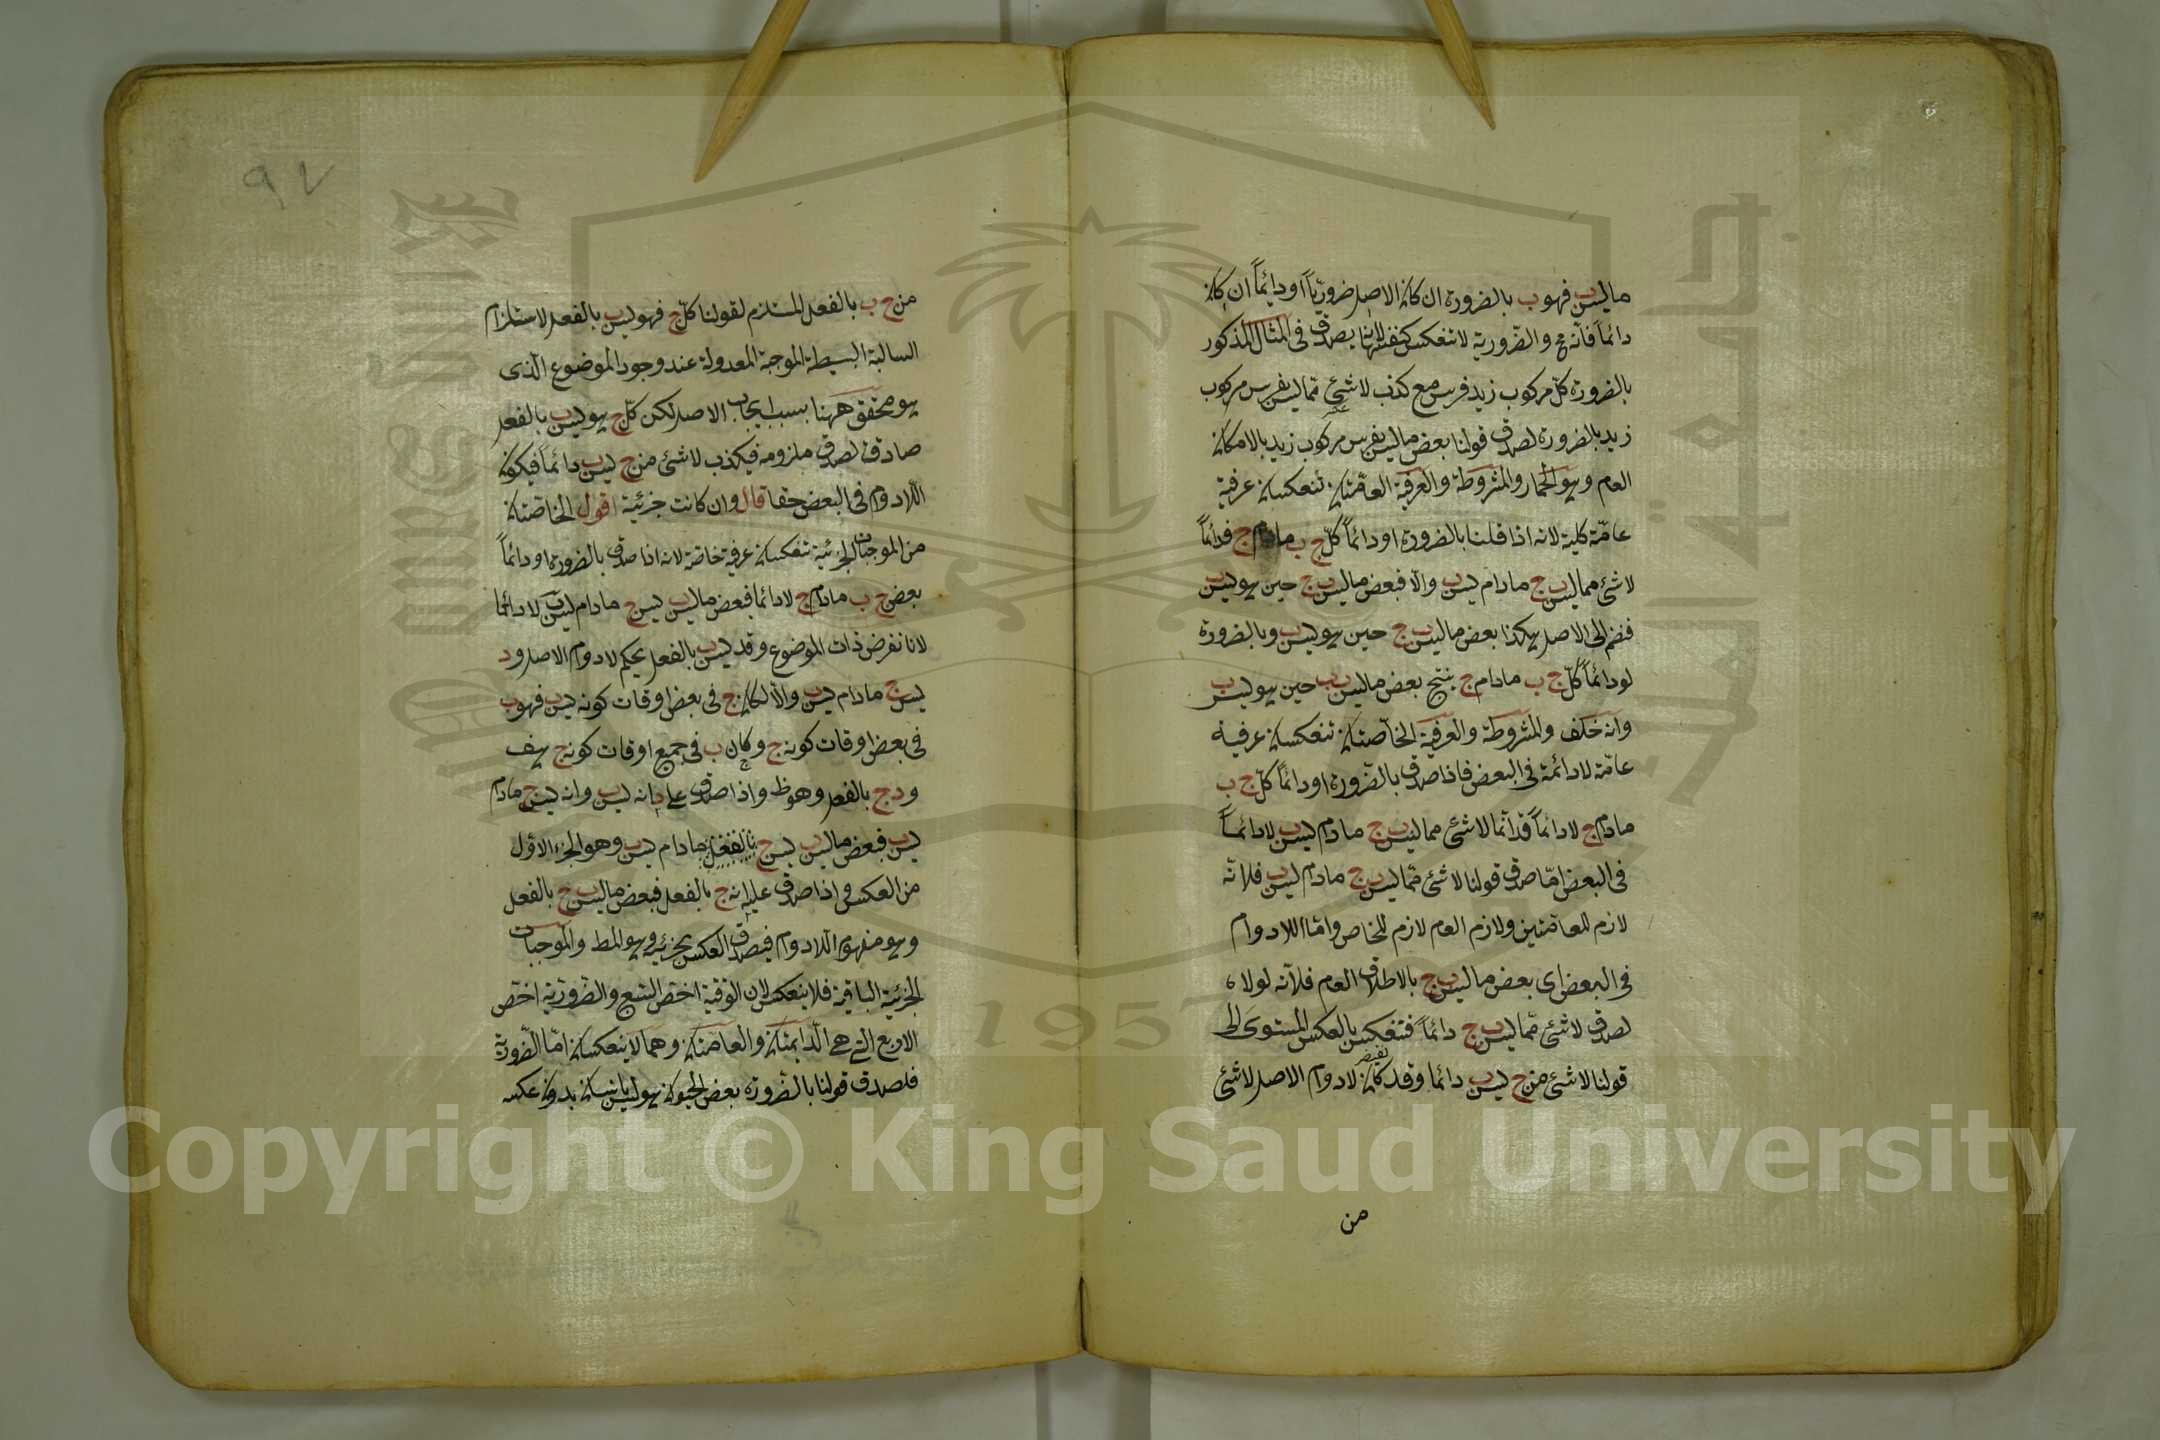 ما ليس ب فهو ب بالضرورة ان كان الاصل ضروريا او دائماً ان كان
دائماً فانه مح والضّرورية لا تنعكس كنفسها لانه يصدق فى المثال المذكور
بالضرورة كل مركوب زيد فرس مع كذب لا شئ مما ليس بفرس مركوب
زيد بالضرورة لصدق قولنا بعض ما ليس بفرس مركوب زيد بالامكان
العام وهو الحمار والمشروطة والعرفية العامّتان تنعكسان عرفية
عامّة كلية لانه اذا قلنا بالضرورة او دائماً كل ج ب مادام ج فدائماً
لا شئ مما ليس ب ج مادام ليس ب والا فبعض ما ليس ب ج حين هو ليس ب
فنضم الى الاصل هكذا بعض ما ليس ب ج حين هو ليس ب وبالضرورة
او دائماً كل ج ب مادام ج ينتج بعض ما ليس ب ب حين هو ليس ب
وانه خلف والمشروطة والعرفية الخاصّتان تنعكسان عرفية
عامّة لا دائمة فى البعض فاذا صدق بالضّرورة او دائماً كل ج ب
مادام ج لا دائماً فدائما لا شئ مما ليس ب ج مادام ليس ب لا دائمــاً
فى البعض امّا صدق قولنا لا شئ ممّا ليس ب ج مادام ليس ب فلانّه
لازم للعامّتين ولازم العام لازم للخاص وامّا اللادوام
فى البعض اى بعض ما ليس ب ج بالاطلاق العام فلانه لولاه
لصدق لا شئ ممّا ليس ب ج دائماً فتنعكس بالعكس المستوى الى
قولنا لا شئ من ج ليس ب دائما وقد كان لادوام الاصل لا شئ
من
٩٧
من ج ب بالفعل المستلزم لقولنا كل ج فهو ليس ب بالفعل لاستلزام
السالبة البسيطة الموجبة المعدولة عند وجود الموضوع الّذى
هو محقق ههنا بسبب ايجاب الاصل لكن كل ج هو ليس ب بالفعل
صادق لصدق ملزومه فيكذب لا شئ من ج ليس ب دائماً فيكون
اللادوام فى البعض حقا قال وان كانت جزئية اقول الخاصّتان
من الموجبات الجزئية تنعكسان عرفية خاصّة لانه اذا صدق بالضرورة او دائماً
بعض ج ب مادام ج لا دائما فبعض ما ليس ب ليس ج مادام ليس ب لا دائما
لانا نفرض ذات الموضوع د فد ليس ب بالفعل بحكم لادوام الاصل ود
ليس ج مادام ليس ب والّا لكان ج فى بعض اوقات كونه ليس ب فهو ب
فى بعض اوقات كونه ج وكان ب فى جميع اوقات كونه ج هف
و د ج بالفعل وهو ظ واذا صدق على د انه ليس ب وانه ليس ج مادام
ليس ب فبعض ما ليس ب ليس ج بالفعل مادام ليس ب وهو الجزء الاول
من العكس واذا صدق عليه انه ج بالفعل فبعض ما ليس ب ج بالفعل
وهو مفهوم اللادوام فيصدق العكس بجزئيه وهو المط والموجبات
الجزئية الباقية فلا ينعكس لان الوقتية اخص السبع والضّروريّة اخصّ
الاربع التى هى الدّايمتان والعامّتان وهما لا ينعكسان امّا الضّرورية
فلصدق قولنا بالضّرورة بعض الحيوان هو ليس بانسان بدون عكسه
Copyright © King Saud University
1957